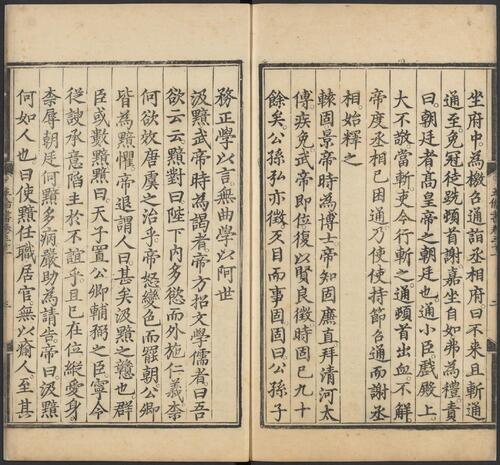 坐府中。為檄召通詣丞相府曰不来且斬通
通至免冠徒跣頓首謝嘉坐自如弗為禮責
曰朝廷者高皇帝之朝廷也。通小臣戲殿上。
大不敬。當斬吏今行斬之。通頓首出血。不解
帝度丞相已困通乃使使持節召通而謝丞
相。始釋之
轅固景帝時為博士帝知固廉直拜清河太
傅。疾免武帝即位。復以賢良徵。時固已九十
餘矣。公孫弘亦徴。仄目而事固。固曰公孫子
務正學以言。無曲學以阿世
汲黯武帝時為謁者。帝方招文學儒者。曰吾
欲云云。黯對曰陛下内多慾而外施仁義柰
何欲效唐虞之治乎。帝怒變色而罷朝公卿
皆為黯懼。帝退謂人曰。甚矣汲黯之戇也群
臣或數黯黯曰。天子置公卿輔弼之臣。寧令
從諛承意陷主於不誼乎且已在位縱愛身。
柰辱朝廷何。黯多病嚴助為請告。帝曰汲黯
何如人也。曰使黯任職居官。無以瘉人。至其